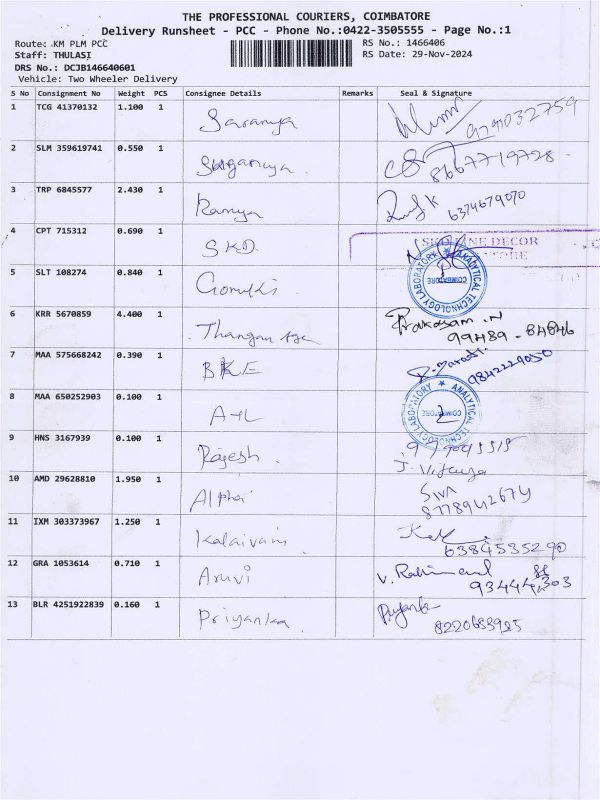 THE PROFESSIONAL COURIERS, COIMBATORE
Delivery Runsheet - PCC - Phone No.:0422-3505555 - Page No.:1
Route: KM PLM PCC
RS No.: 1466406
Staff: THULASI
RS Date: 29-Nov-2024
DRS No.: DCJB146640601
Vehicle: Two Wheeler Delivery
S No Consignment No Weight PCS Consignee Details Remarks Seal & Signature
1 TCG 41370132 1.100 1 Saranya 9791032759
2 SLM 359619741 0.550 1 8667719728
3 TRP 6845577 2.430 1 Ramya 6374679070
4 CPT 715312 0.690 1 SKD DECOR
5 SLT 108274 0.840 1 ANALYTICAL TECHNOLOGY LABORATORY COIMBATORE
6 KRR 5670859 4.400 1 Thangam Prakasam.N
99489-84846
7 MAA 575668242 0.390 1 BKE 9842229050
8 MAA 650252903 0.100 1 ATL ANALYTICAL TECHNOLOGY LABORATORY COIMBATORE
9 HNS 3167939 0.100 1 Rajesh
10 AMD 29628810 1.950 1 Alpha Siva
8778942674
11 IXM 303373967 1.250 1 Kalaivani
6384535290
12 GRA 1053614 0.710 1 Aruvi
13 BLR 4251922839 0.160 1 Priyanka Priyanka
8220683925